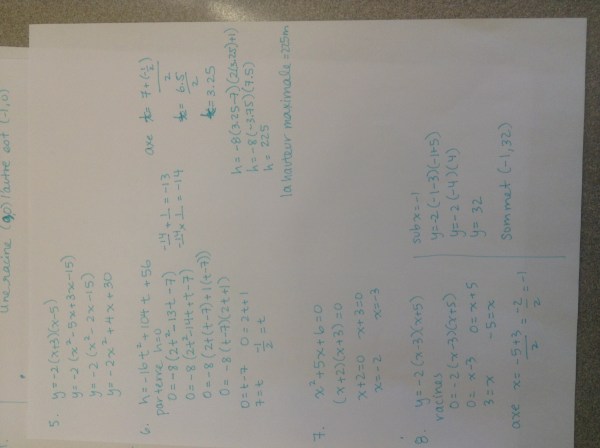 une racine (9,0) l'autre est (-1,0)
5. y = -2(x+3)(x-5)
y = -2(x²-5x+3x-15)
y = -2(x²-2x-15)
y = -2x²+4x+30
6. h = -16t²+104t+56
par terre h=0
0 = -8(2t²-13t-7)
0 = -8(2t²-14t+t-7)
0 = -8(2t(t-7)+1(t-7))
0 = -8(t-7)(2t+1)
0 = t-7 0 = 2t+1
7 = t -1/2 = t
-14 + 1 = -13
-14 x 1 = -14
axe t = 7+(-1/2) / 2
t = 6.5 / 2
t = 3.25
h = -8(3.25-7)(2(3.25)+1)
h = -8(-3.75)(7.5)
h = 225
la hauteur maximale = 225m
7. x²+5x+6=0
(x+2)(x+3)=0
x+2=0 x+3=0
x=-2 x=-3
8. y = -2(x-3)(x+5)
racines
0 = -2(x-3)(x+5)
0 = x-3 0 = x+5
3 = x -5 = x
axe x = -5+3 / 2 = -2 / 2 = -1
sub x=-1
y = -2(-1-3)(-1+5)
y = -2(-4)(4)
y = 32
sommet (-1, 32)